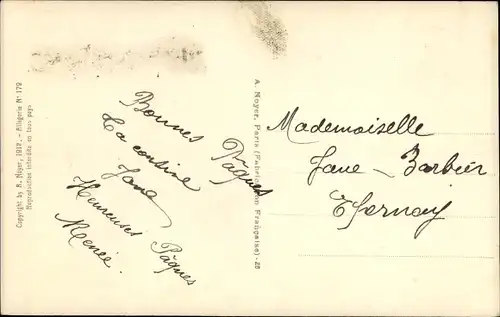 Copyright by A. Noyer, 1912. - Allegorie N° 179
Reproduction interdite en tous pays
Bonnes Pâques
Ta cousine
Jane
Heureuses Pâques
A. Noyer, Paris (Fabrication Française) - 28
Mademoiselle
Jane - Barbier